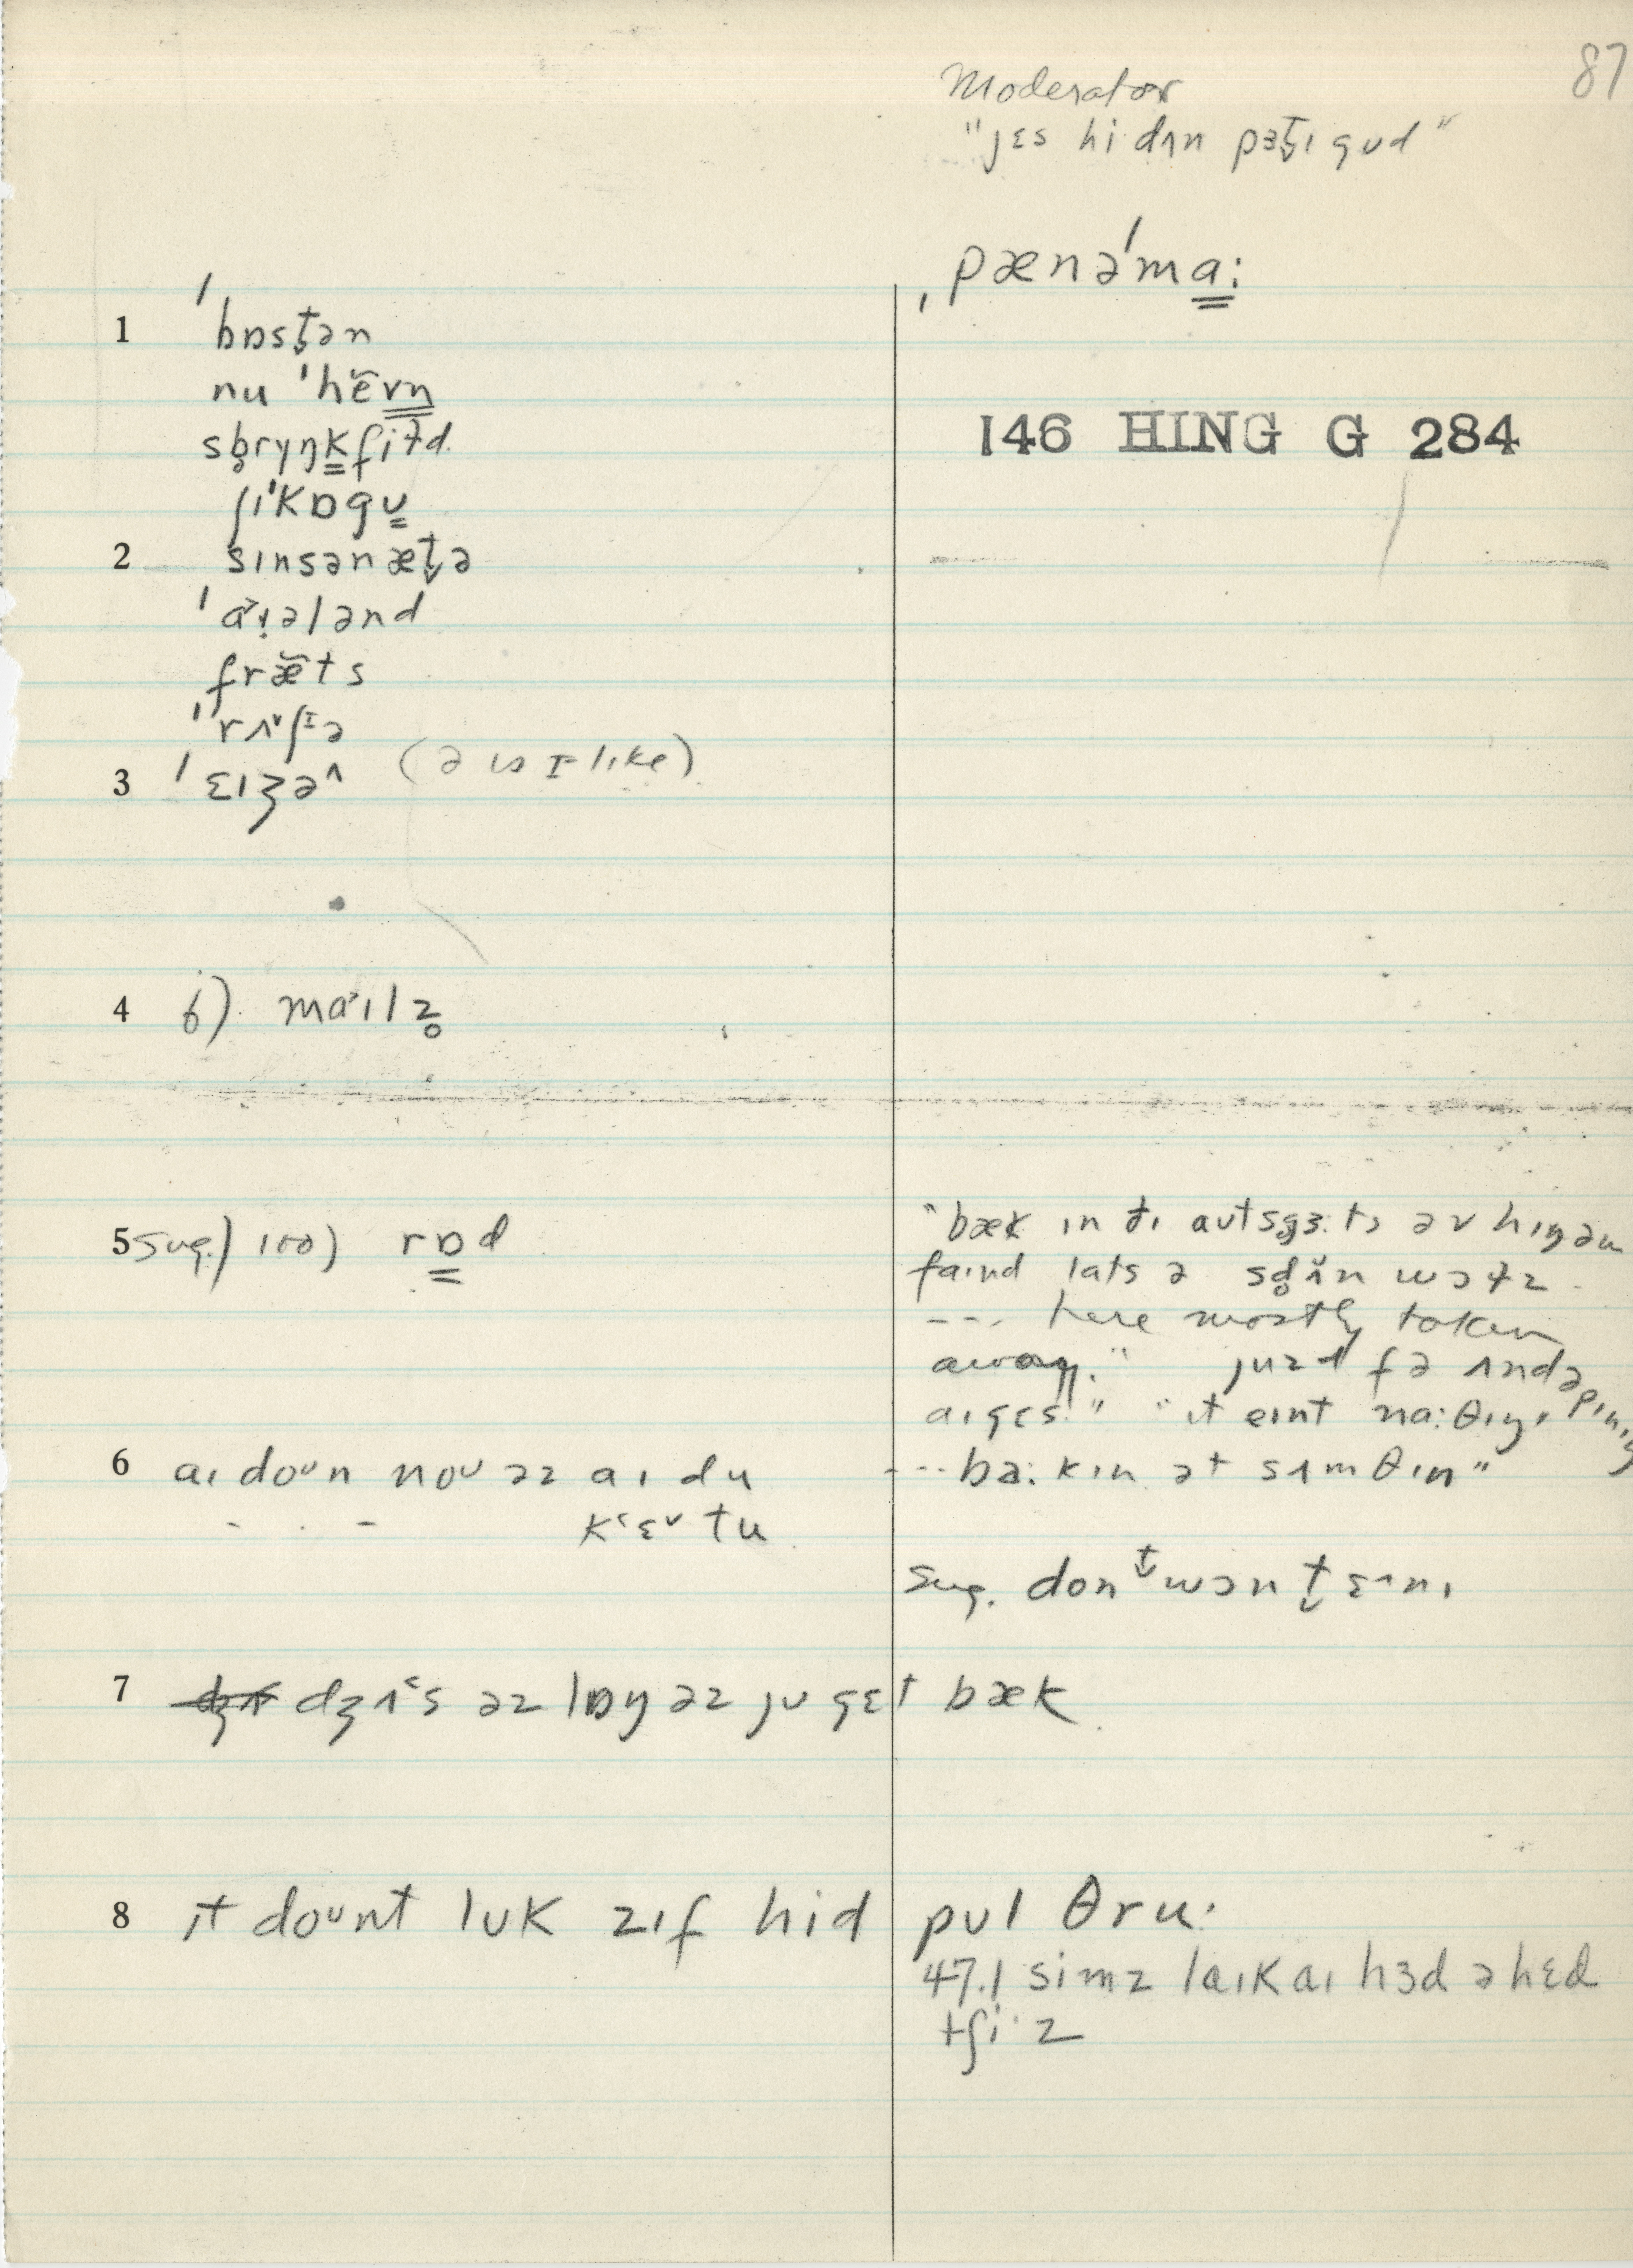 87
Moderator
"jɛs hi· dʌn pɜt̬ɪ gʊd"
ˌpænəˈma̳:
146 HING G 284
1 ˈbɒst̬ən
nu ˈhĕvn̳
sb̥ryŋk̳fiɫd.
ʃɪˈkɒgʊ̳
2 sɪnsənæt̬ə
ˈa˃ɪ̣ələnd
fræ̆ts
ˈrʌ˅ʃᴵə
3 ˈɛɪʒə^ (ə is ɪ-like)
4 b) ma˃ɪlz̥
5 sug.) 100) rɒ̳d
"bæk ɪn ðɪ aʊtsg̥ɜ:ts əv hɪŋəm
faɪnd lats ə sd̥ʌ̆n wɔɫz
--- here mostly taken
away." juzd fə ʌndəpɪnɪŋ
aɪgɛs" "ɪt eɪnt na:θɪŋ
---ba:kɪn ət sʌmθɪn"
6 aɪ doʊn noʊ əz aɪ du
- . - k˂ɛ˅ tu
sug. donᵗ̬ wɔn t̬ ɛ^nɪ
7 dʒʌ˂s əz lɒŋ əz jʊ gɛt bæk
8 ɪt doʊnt lʊk zɪf hid pʊl θru·
47.1 simz laɪk aɪ hɜd əhɛd
tʃi·z